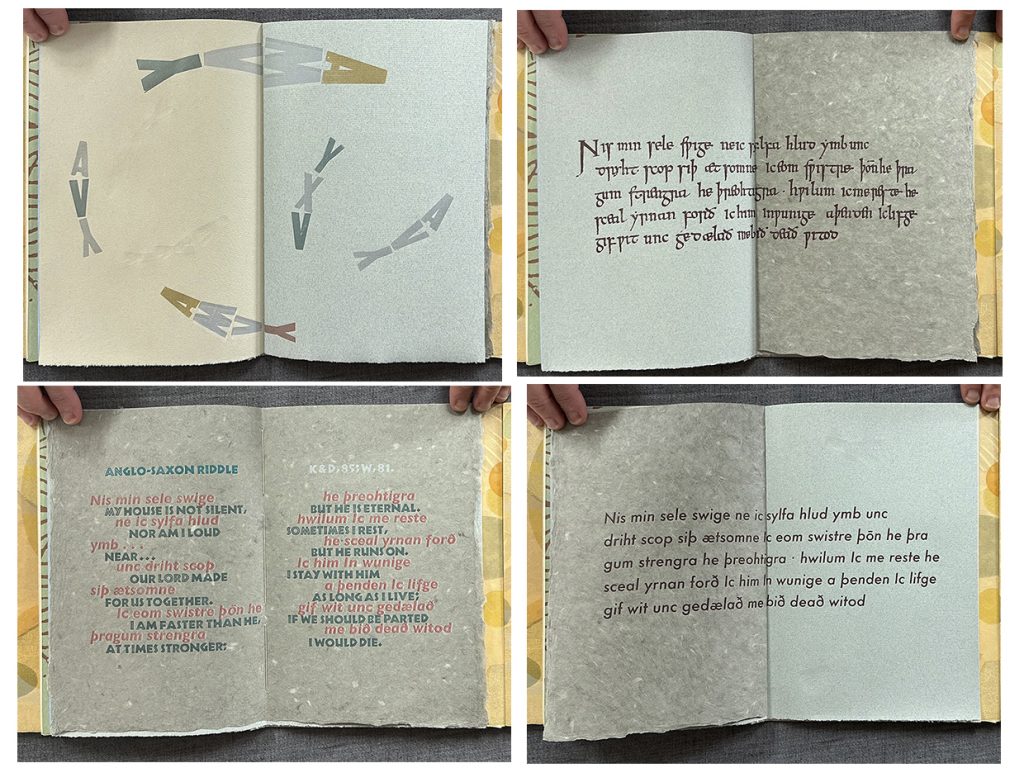 AVY
YXV
Nis min sele swige ne ic sylfa hlud ymb unc
driht scop siþ ætsomne Ic eom swistre þōn he þra
gum strengra he þreohtigra · hwilum ic me reste he
sceal yrnan forð Ic him inwunige a þenden Ic lifge
gif wit unc gedælað me bið deað witod
ANGLO-SAXON RIDDLE
Nis min sele swige
MY HOUSE IS NOT SILENT,
ne ic sylfa hlud
NOR AM I LOUD
ymb . . .
NEAR . . .
unc driht scop
OUR LORD MADE
siþ ætsomne
FOR US TOGETHER.
Ic eom swistre þōn he
I AM FASTER THAN HE,
þragum strengra
AT TIMES STRONGER;
K & D, 85; W, 81.
he þreohtigra
BUT HE IS ETERNAL.
hwilum Ic me reste
SOMETIMES I REST,
he sceal yrnan forð
BUT HE RUNS ON.
Ic him In wunige
I STAY WITH HIM
a þenden Ic lifge
AS LONG AS I LIVE;
gif wit unc gedælað
IF WE SHOULD BE PARTED
me bið deað witod
I WOULD DIE.
Nis min sele swige ne ic sylfa hlud ymb unc
driht scop siþ ætsomne Ic eom swistre þōn he þra
gum strengra he þreohtigra · hwilum Ic me reste he
sceal yrnan forð Ic him In wunige a þenden Ic lifge
gif wit unc gedælað me bið deað witod